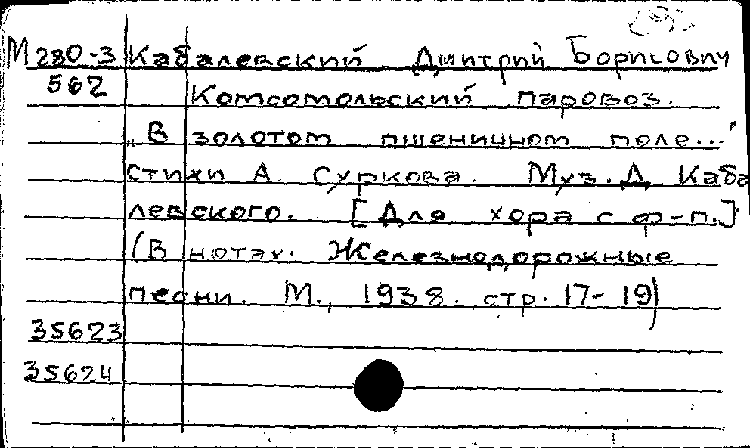 М280-3 Кабалевский Дмитрий Борисович
562 Комсомольский паровоз.
„В золотом пшеничном поле..."
Стихи А. Суркова. Муз. Д. Каба
левского. [Для хора с ф-п.]
(В нотах. Железнодорожные
песни. М., 1938. стр. 17-19)
35623
35624